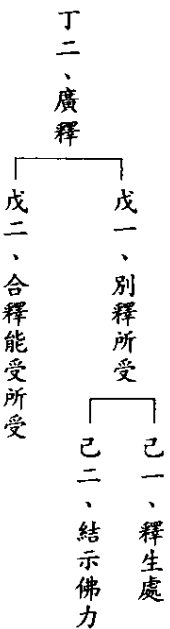 丁二、廣釋
戊一、別釋所受
己一、釋生處
己二、結示佛力
戊二、合釋能受所受